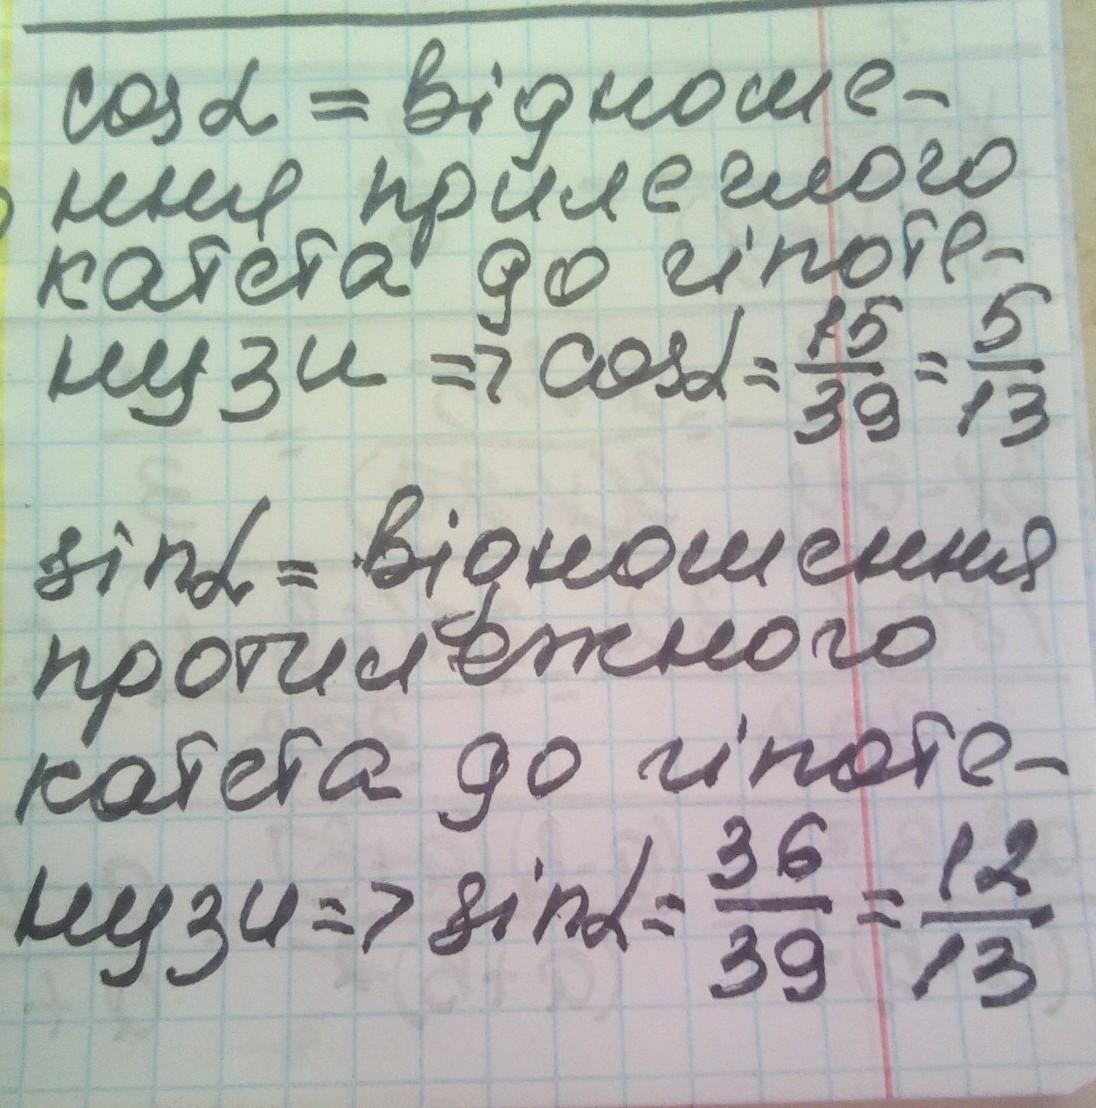 cosα = відноше-
ння прилеглого
катета до гіпоте-
нузи => cosα = 15/39 = 5/13
sinα = відношення
протилежного
катета до гіпоте-
нузи => sinα = 36/39 = 12/13